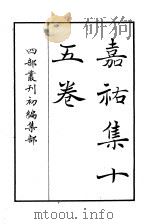 嘉祐集十
五卷
四部叢刊初編集部
www.zxhsd.com